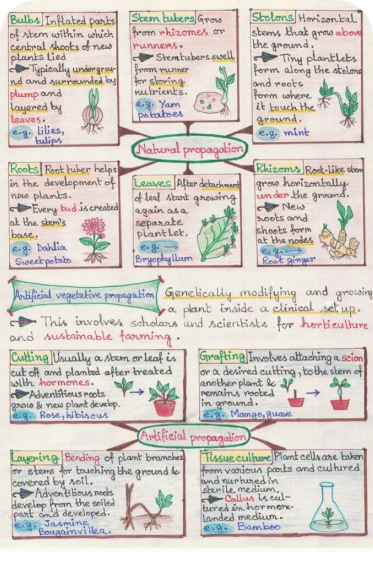 Bulbs Inflated parts
of stem within which
central shoots of new
plants lied
Typically undergrou-
nd and surrounded by
plump and
layered by
leaves.
e.g. lilies,
tulips
Stem tubers Grow
from rhizomes or
runners.
Stemtubers swell
from runner
for storing
nutrients.
e.g. Yam
potatoes
Stolons Horizontal
stems that grow above
the ground.
Tiny plantlets
form along the stolons
and roots
form where
it touch the
ground.
e.g. mint
Natural propagation
Roots Root tuber helps
in the development of
new plants.
Every bud is created
at the stem's
base.
e.g. Dahlia
Sweetpotato
Leaves After detachment
of leaf start growing
again as a
separate
plantlet.
e.g.
Bryophyllum
Rhizoms Root-like stem
grow horizontally
under the ground.
New
roots and
shoots form
at the nodes
e.g.
Root ginger
Artificial vegetative propagation
Genetically modifying and growing
a plant inside a clinical set up.
This involves scholars and scientists for horticulture
and sustainable farming.
Cutting Usually a stem or leaf is
cut off and planted after treated
with hormones.
Adventitious roots
grow & new plant develop.
e.g. Rose, hibiscus
Grafting Involves attaching a scion
or a desired cutting, to the stem of
another plant &
remains rooted
in ground.
e.g. Mango, guave
Artificial propagation
Layering Bending of plant branches
or stems for touching the ground &
covered by soil.
Adventious roots
develop from the soiled
part and developed.
e.g. Jasmine
Bougainvillea.
Tissue culture Plant cells are taken
from various parts and cultured
and nurtured in
sterile medium.
Callus is cul-
tured in hormone-
landed medium.
e.g. Bamboo